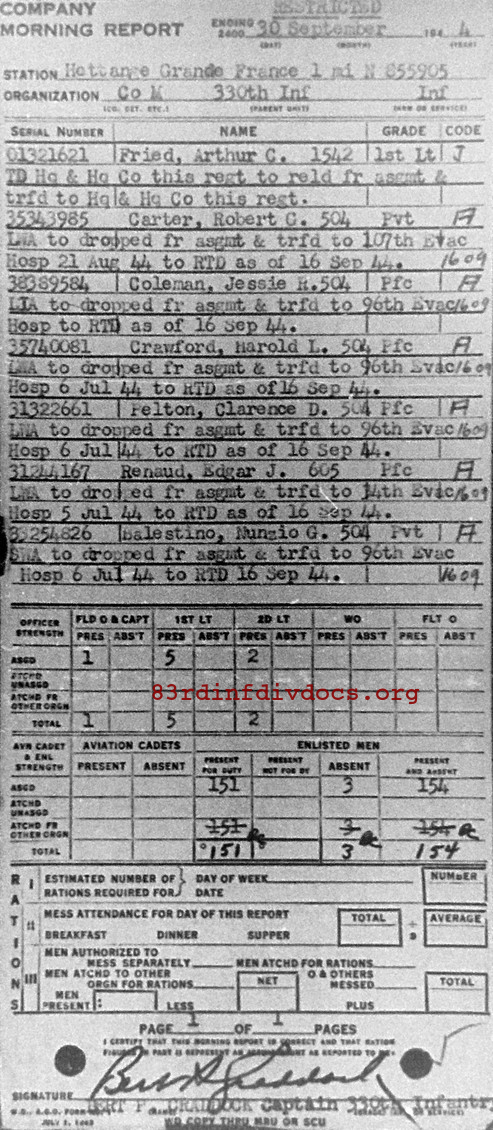 COMPANY RESTRICTED
MORNING REPORT ENDING 2400 30 September 194 4
(DAY) (MONTH) (YEAR)
STATION Hettange Grande France 1 mi N 855905
ORGANIZATION Co M 330th Inf Inf
(CO. DET. ETC.) (PARENT UNIT) (ARM OR SERVICE)
SERIAL NUMBER NAME GRADE CODE
01321621 Fried, Arthur C. 1542 1st Lt J
TD Hq & Hq Co this regt to reld fr asgmt &
trfd to Hq & Hq Co this regt.
35343985 Carter, Robert G. 504 Pvt A
LWA to dropped fr asgmt & trfd to 107th Evac
Hosp 21 Aug 44 to RTD as of 16 Sep 44. 1609
38389584 Coleman, Jessie H.504 Pfc A
LIA to dropped fr asgmt & trfd to 96th Evac 1609
Hosp to RTD as of 16 Sep 44.
35740081 Crawford, Harold L. 504 Pfc A
LWA to dropped fr asgmt & trfd to 96th Evac 1609
Hosp 6 Jul 44 to RTD as of 16 Sep 44.
31322661 Felton, Clarence D. 504 Pfc A
LWA to dropped fr asgmt & trfd to 96th Evac 1609
Hosp 6 Jul 44 to RTD as of 16 Sep 44.
31244167 Renaud, Edgar J. 605 Pfc A
LWA to droped fr asgmt & trfd to 14th Evac 1609
Hosp 5 Jul 44 to RTD as of 16 Sep 44.
33254826 Balestino, Nunzio G. 504 Pvt A
SWA to dropped fr asgmt & trfd to 96th Evac
Hosp 6 Jul 44 to RTD 16 Sep 44. 1609
OFFICER STRENGTH FLD O & CAPT 1ST LT 2D LT WO FLT O
PRES ABS'T PRES ABS'T PRES ABS'T PRES ABS'T PRES ABS'T
ASGD 1 5 2
ATCHD UNASGD
ATCHD FR OTHER ORGN
83rdinfdivdocs.org
TOTAL 1 5 2
AVN CADET & ENL STRENGTH AVIATION CADETS ENLISTED MEN
PRESENT ABSENT PRESENT FOR DUTY PRESENT NOT FOR DY ABSENT PRESENT AND ABSENT
ASGD 151 3 154
ATCHD UNASGD
ATCHD FR OTHER ORGN 151 3 154
TOTAL 151 3 154
RATIONS
I ESTIMATED NUMBER OF DAY OF WEEK NUMBER
RATIONS REQUIRED FOR DATE
II MESS ATTENDANCE FOR DAY OF THIS REPORT TOTAL ÷ 3 AVERAGE
BREAKFAST DINNER SUPPER
III MEN AUTHORIZED TO
MESS SEPARATELY MEN ATCHD FOR RATIONS
MEN ATCHD TO OTHER ORGN FOR RATIONS NET O & OTHERS MESSED TOTAL
MEN PRESENT: LESS PLUS
PAGE 1 OF 1 PAGES
I CERTIFY THAT THIS MORNING REPORT IS CORRECT AND THAT RATION
FIGURES IN PART III REPRESENT AN AS REPORTED TO ME
SIGNATURE
BERT F. CRADDOCK Captain 330th Infantry
W.D., A.G.O. FORM (NAME) (GRADE) (ARM OR SERVICE)
JULY 1, 1943 WD COPY THRU MRU OR SCU